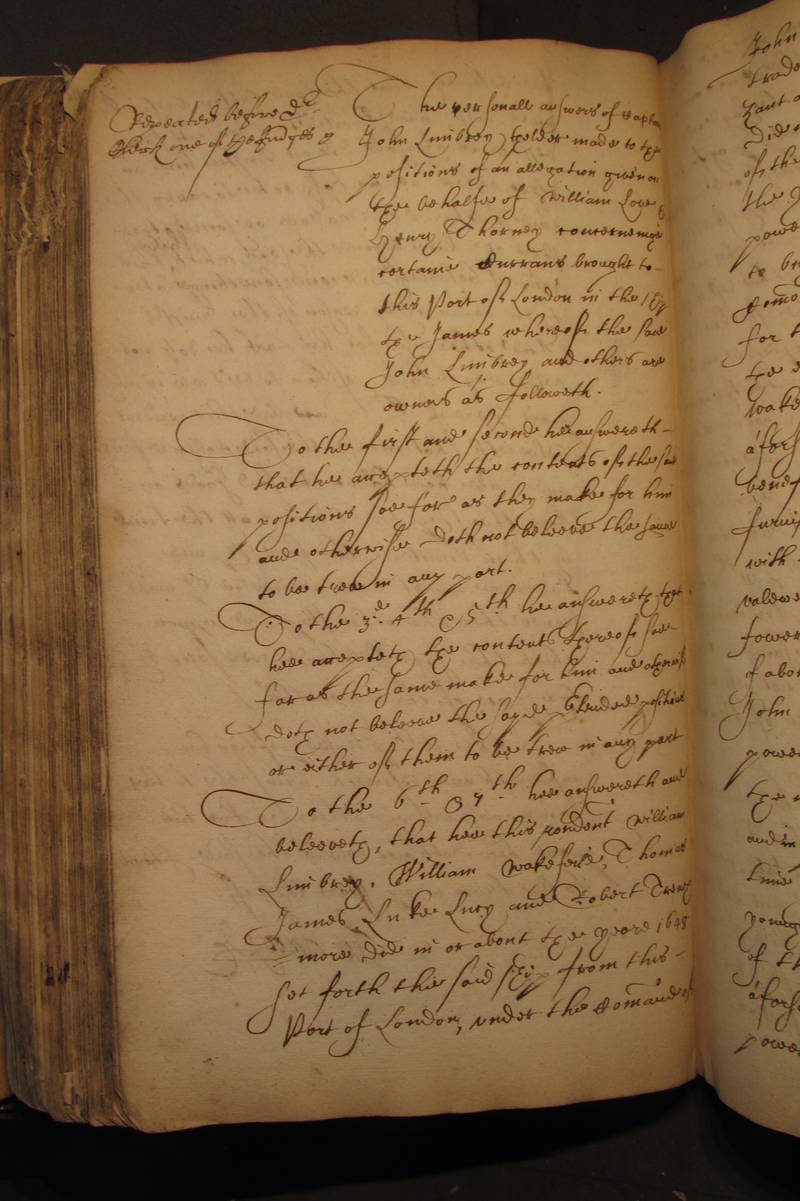 Repeated before dr.
Clerk one of the Judges
The personall answers of Captaine
John Limbrey the elder made to the
positions of an allegation given on
the behalfe of William Love &
Henry Thorney concerneinge
certaine Currans brought to
this Port of London in the ship
the James whereof the said
John Limbrey and others are
owners as followeth.
To the first and second hee answereth
that he accepteth the contents of the said
positions soe far as they make for him
and otherwise doth not beleeve the same
to be true in any part.
To the 3d. 4th & 5th. he answereth that
hee accepteth the contents thereof soe
far as the same make for him and otherwise
doth not beleeve the sayd positions
or either of them to be true in any part
To the 6th & 7th. hee answereth and
beleeveth, that hee this rondent William
Limbrey, William Wakefeild, Thomas
James, Luke Lucy and Robert
more did in or about the yeare 1648
set forth the said ship from this
Port of London, under the comand of
John
trade
Zant
did
of the
the
powe
to
for
the
aforsd
with
valewe
fower
of abo
John
powe
the
and in
time
of
aforsd
powe